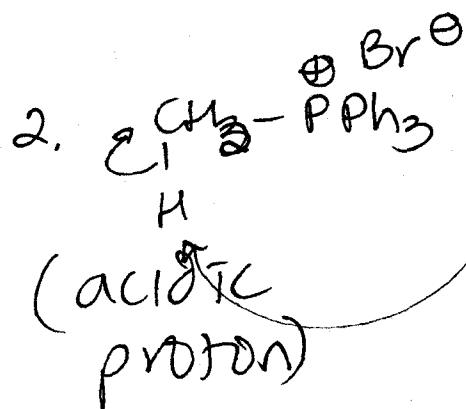 ⊕ Br⊖
2. CH2–PPh3
H
(acidic
proton)